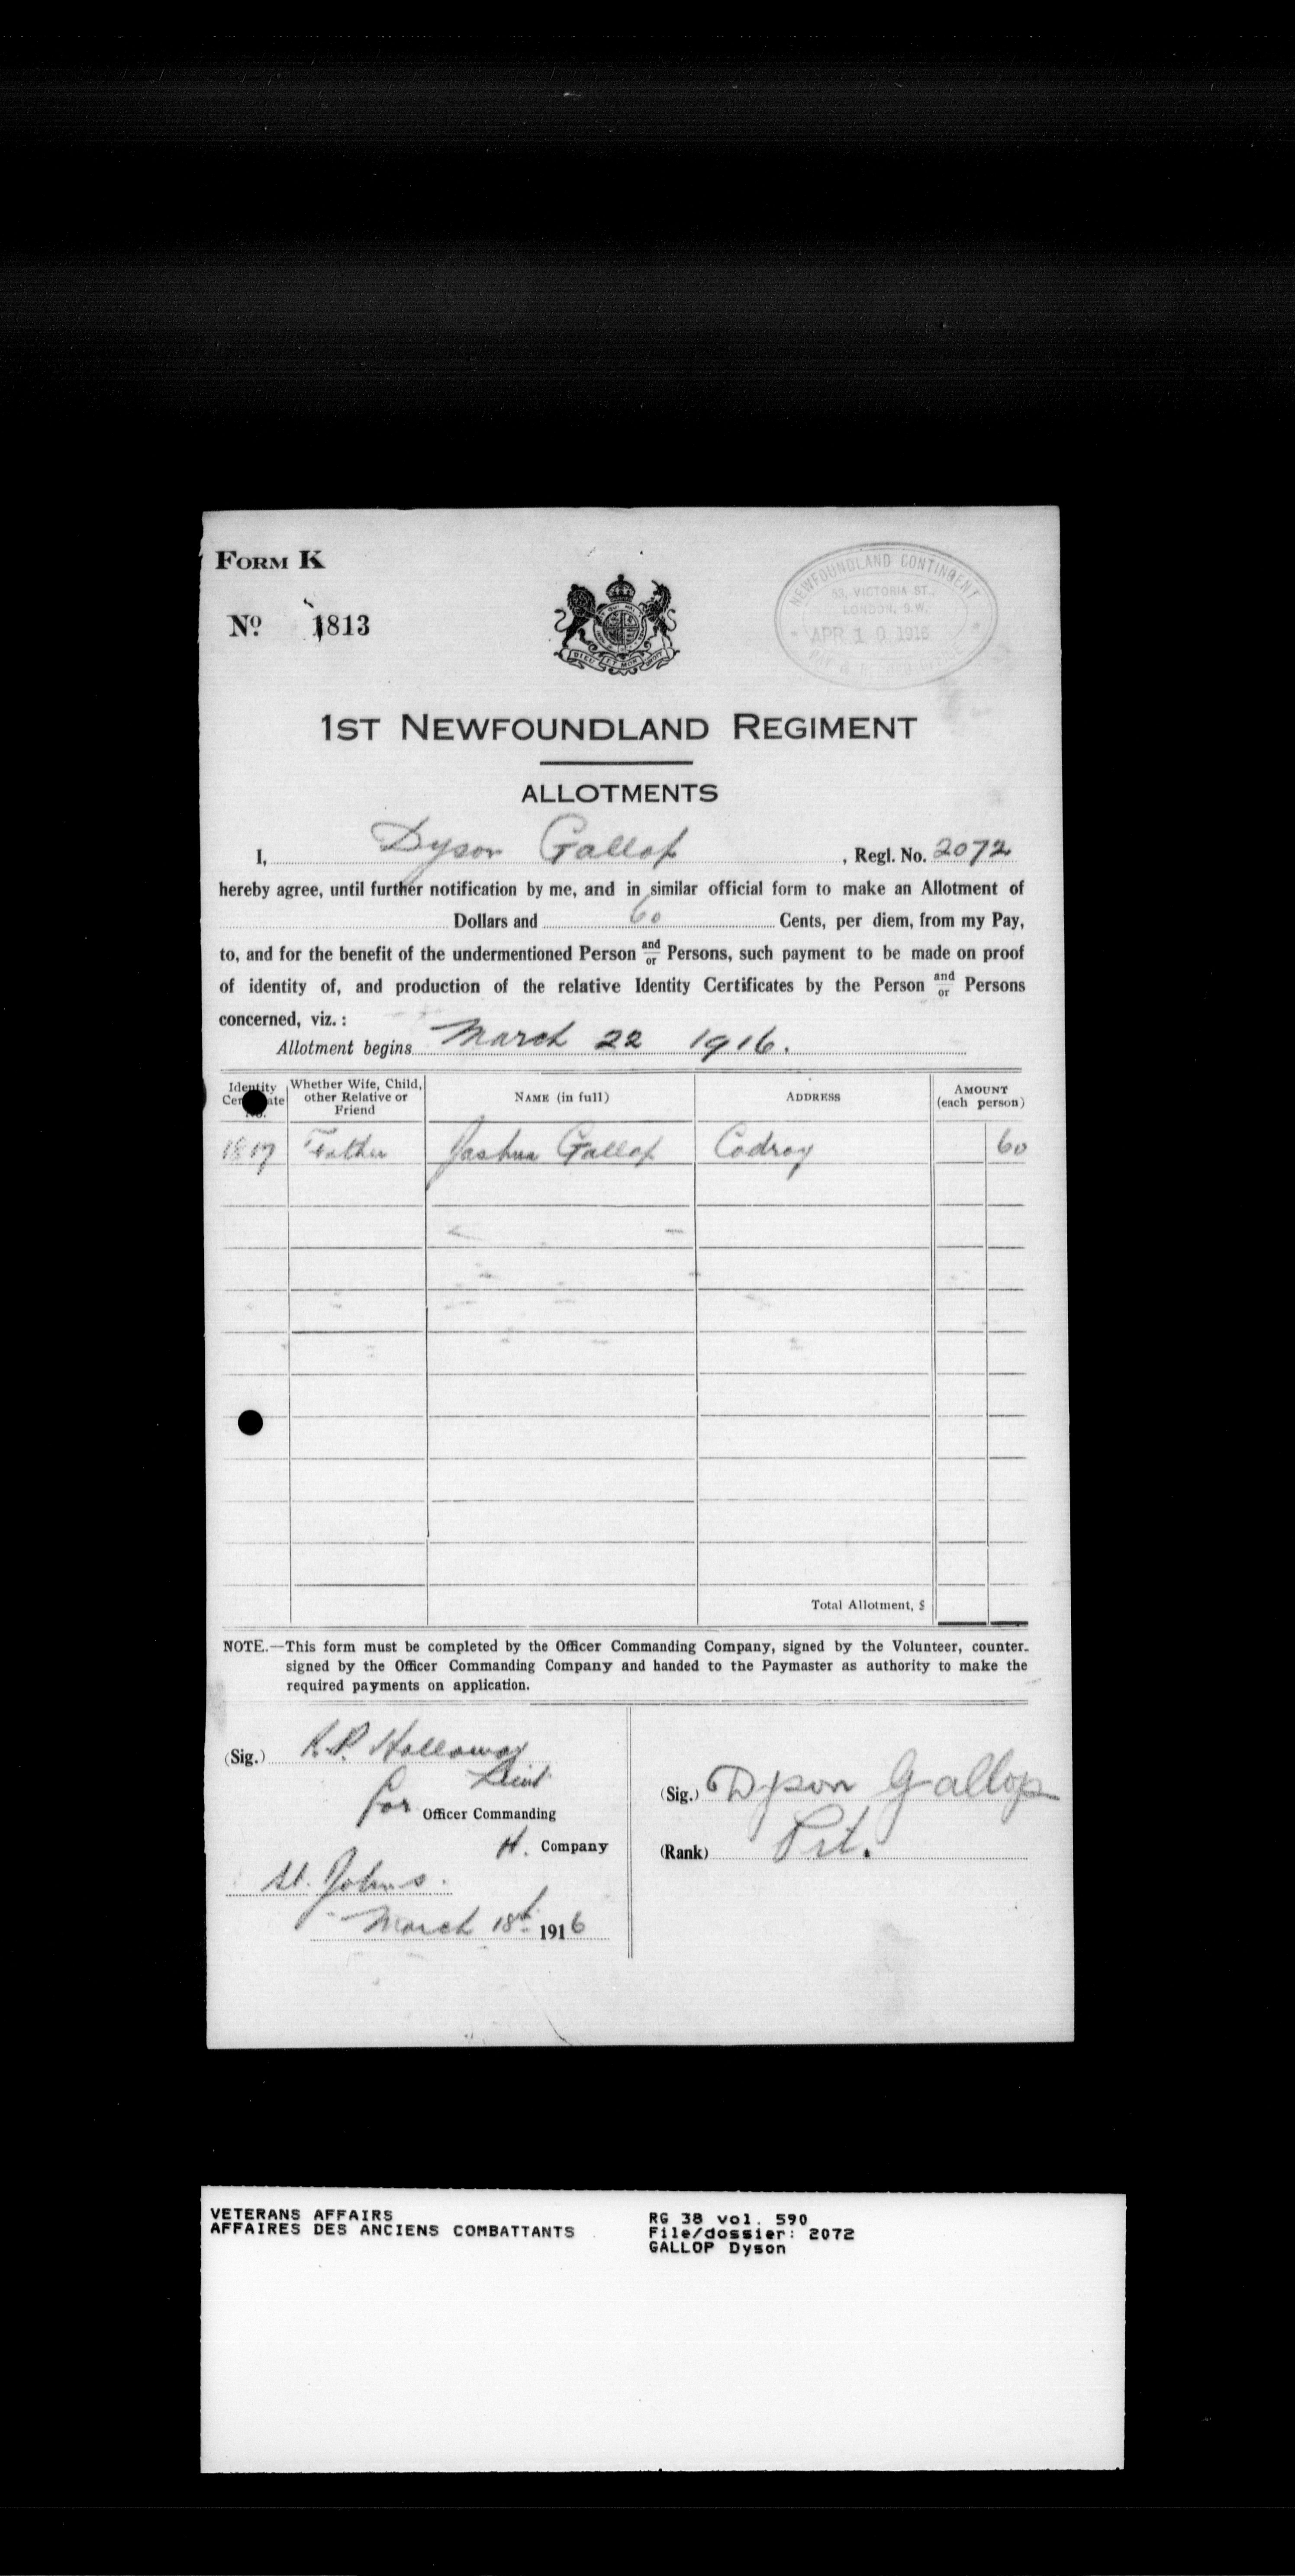 FORM K
No. 1813
NEWFOUNDLAND CONTINGENT
58, VICTORIA ST.,
LONDON, S.W.
APR 10 1916
PAY & RECORD OFFICE
DIEU ET MON DROIT
1ST NEWFOUNDLAND REGIMENT
ALLOTMENTS
I, Dyson Gallop, Regl. No. 2072
hereby agree, until further notification by me, and in similar official form to make an Allotment of
Dollars and 60 Cents, per diem, from my Pay,
to, and for the benefit of the undermentioned Person and/or Persons, such payment to be made on proof
of identity of, and production of the relative Identity Certificates by the Person and/or Persons
concerned, viz. :
Allotment begins March 22 1916.
Identity Certificate No.
Whether Wife, Child, other Relative or Friend
NAME (in full)
ADDRESS
AMOUNT (each person)
Father Joshua Gallop Codroy 60
Total Allotment, $
NOTE.—This form must be completed by the Officer Commanding Company, signed by the Volunteer, counter-
signed by the Officer Commanding Company and handed to the Paymaster as authority to make the
required payments on application.
(Sig.) Holloway
Lieut
for Officer Commanding
H. Company
St. Johns.
March 18th 1916
(Sig.) Dyson Gallop
(Rank) Prt.
VETERANS AFFAIRS
AFFAIRES DES ANCIENS COMBATTANTS
RG 38 vol. 590
File/dossier: 2072
GALLOP Dyson